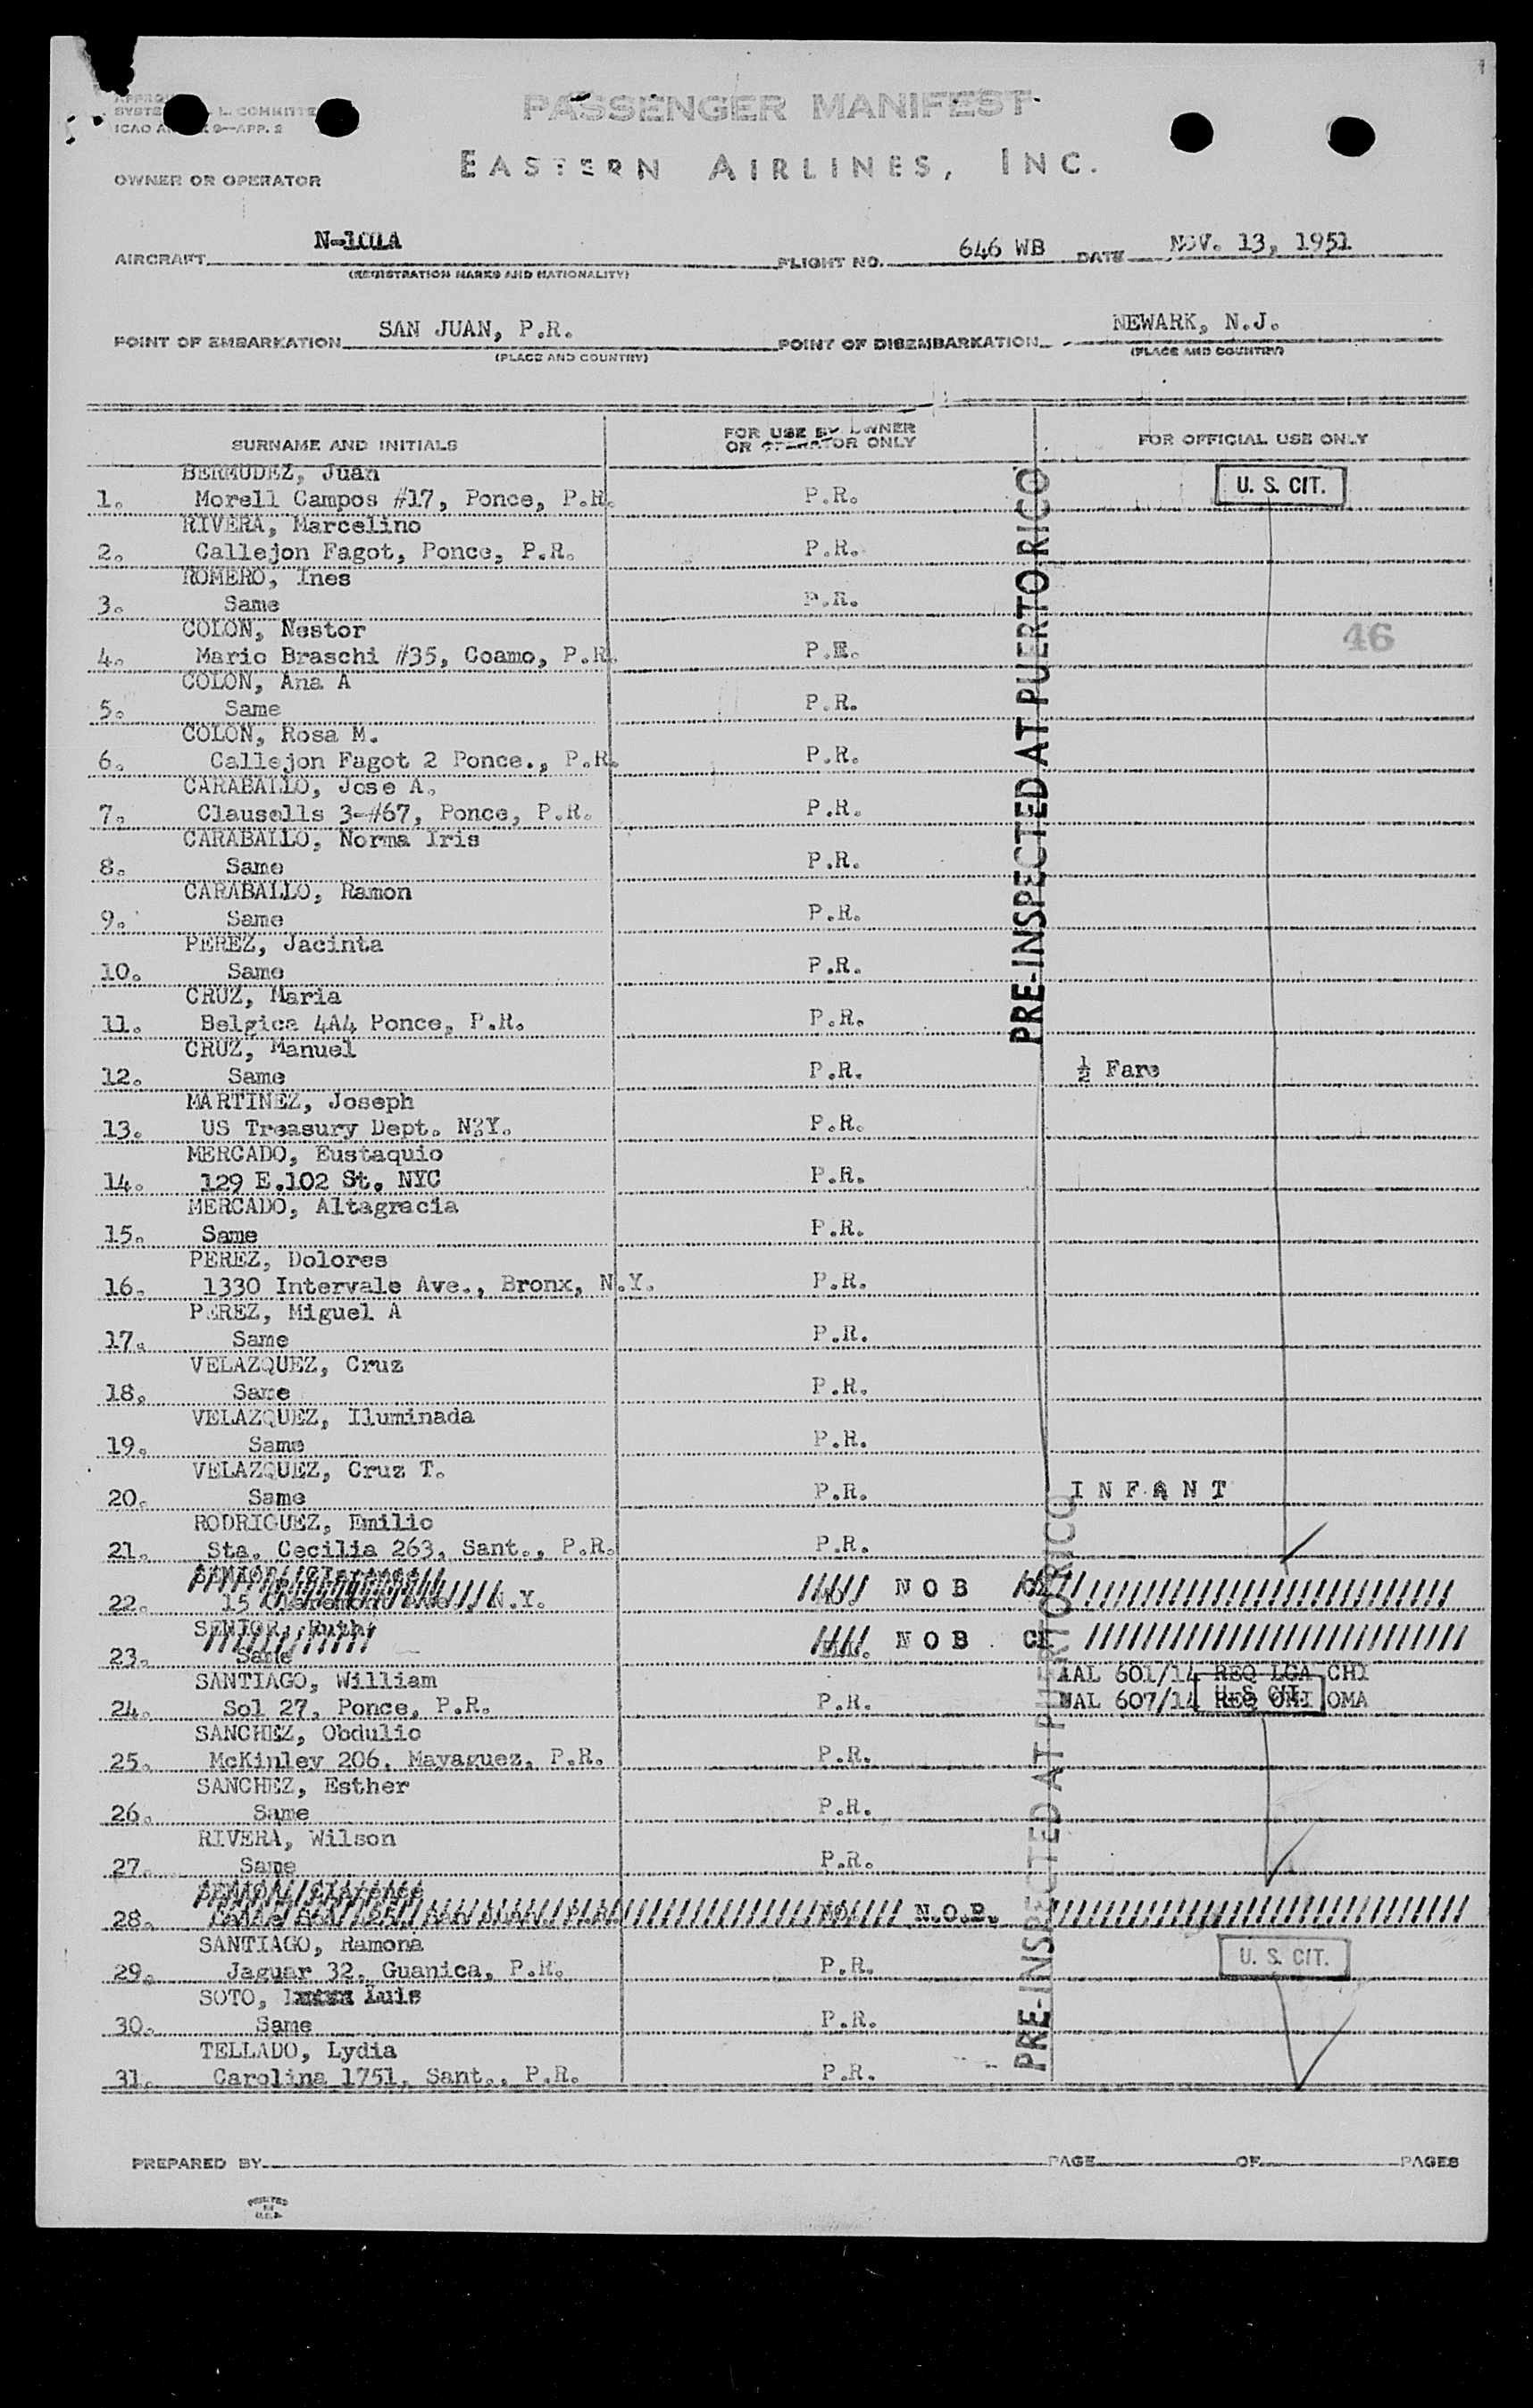 PASSENGER MANIFEST
ICAO 9—APP. 2
EASTERN AIRLINES, INC.
OWNER OR OPERATOR
AIRCRAFT N-101A FLIGHT NO. 646 WB DATE NOV. 13, 1951
(REGISTRATION MARKS AND NATIONALITY)
POINT OF EMBARKATION SAN JUAN, P.R. POINT OF DISEMBARKATION NEWARK, N.J.
(PLACE AND COUNTRY) (PLACE AND COUNTRY)
SURNAME AND INITIALS FOR USE BY OWNER OR OPERATOR ONLY FOR OFFICIAL USE ONLY
BERMUDEZ, Juan U. S. CIT.
1. Morell Campos #17, Ponce, P.R. P.R.
RIVERA, Marcelino
2. Callejon Fagot, Ponce, P.R. P.R.
ROMERO, Ines
3. Same P.R.
COLON, Nestor 46
4. Mario Braschi #35, Coamo, P.R. P.R.
COLON, Ana A
5. Same P.R.
COLON, Rosa M.
6. Callejon Fagot 2 Ponce., P.R. P.R.
CARABALLO, Jose A.
7. Clausells 3-#67, Ponce, P.R. P.R.
CARABALLO, Norma Iris
8. Same P.R.
CARABALLO, Ramon
9. Same P.R.
PEREZ, Jacinta
10. Same P.R.
CRUZ, Maria
11. Belgica 4A4 Ponce, P.R. P.R.
CRUZ, Manuel
12. Same P.R. ½ Fare
MARTINEZ, Joseph
13. US Treasury Dept. N.Y. P.R.
MERCADO, Eustaquio
14. 129 E.102 St. NYC P.R.
MERCADO, Altagracia
15. Same P.R.
PEREZ, Dolores
16. 1330 Intervale Ave., Bronx, N.Y. P.R.
PEREZ, Miguel A
17. Same P.R.
VELAZQUEZ, Cruz
18. Same P.R.
VELAZQUEZ, Iluminada
19. Same P.R.
VELAZQUEZ, Cruz T.
20. Same P.R. I N F A N T
RODRIGUEZ, Emilio
21. Sta. Cecilia 263, Sant., P.R. P.R.
SENIOR, Clarence
22. 15 N.Y. N O B
SENIOR, Ruth
23. Same N O B
SANTIAGO, William AAL 601/14 REQ LGA CHI
24. Sol 27, Ponce, P.R. P.R. UAL 607/14 REQ CHI OMA
U. S. CIT.
SANCHEZ, Obdulio
25. McKinley 206, Mayaguez, P.R. P.R.
SANCHEZ, Esther
26. Same P.R.
RIVERA, Wilson
27. Same P.R.
SENIOR, Clarence
28. N.O.B.
SANTIAGO, Ramona U. S. CIT.
29. Jaguar 32, Guanica, P.R. P.R.
SOTO, Luis
30. Same P.R.
TELLADO, Lydia
31. Carolina 1751, Sant., P.R. P.R.
PRE-INSPECTED AT PUERTO RICO
PRE-INSPECTED AT PUERTO RICO
PREPARED BY PAGE OF PAGES
PRINTED IN U.S.A.